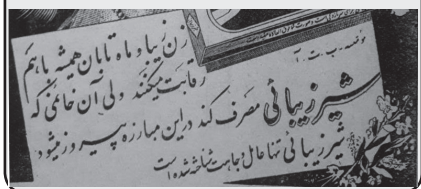 زن زیبا و ماه تابان همیشه با هم
رقابت میکنند ولی آن خانمی که
شیر زیبائی مصرف کند در این مبارزه پیروز میشود
شیر زیبائی تنها عامل وجاهت شناخته شده است